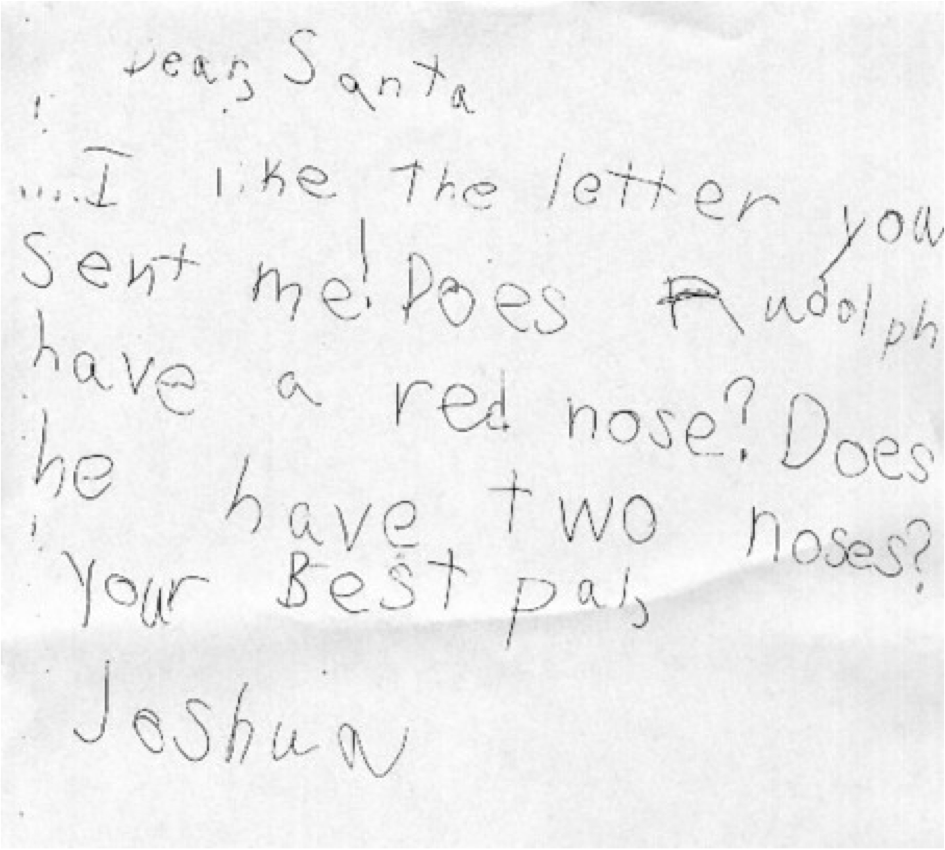 Dear, Santa
....I like The letter you
Sent me! Does Rudolph
have a red nose? Does
he have two noses?
Your Best pal,
Joshua